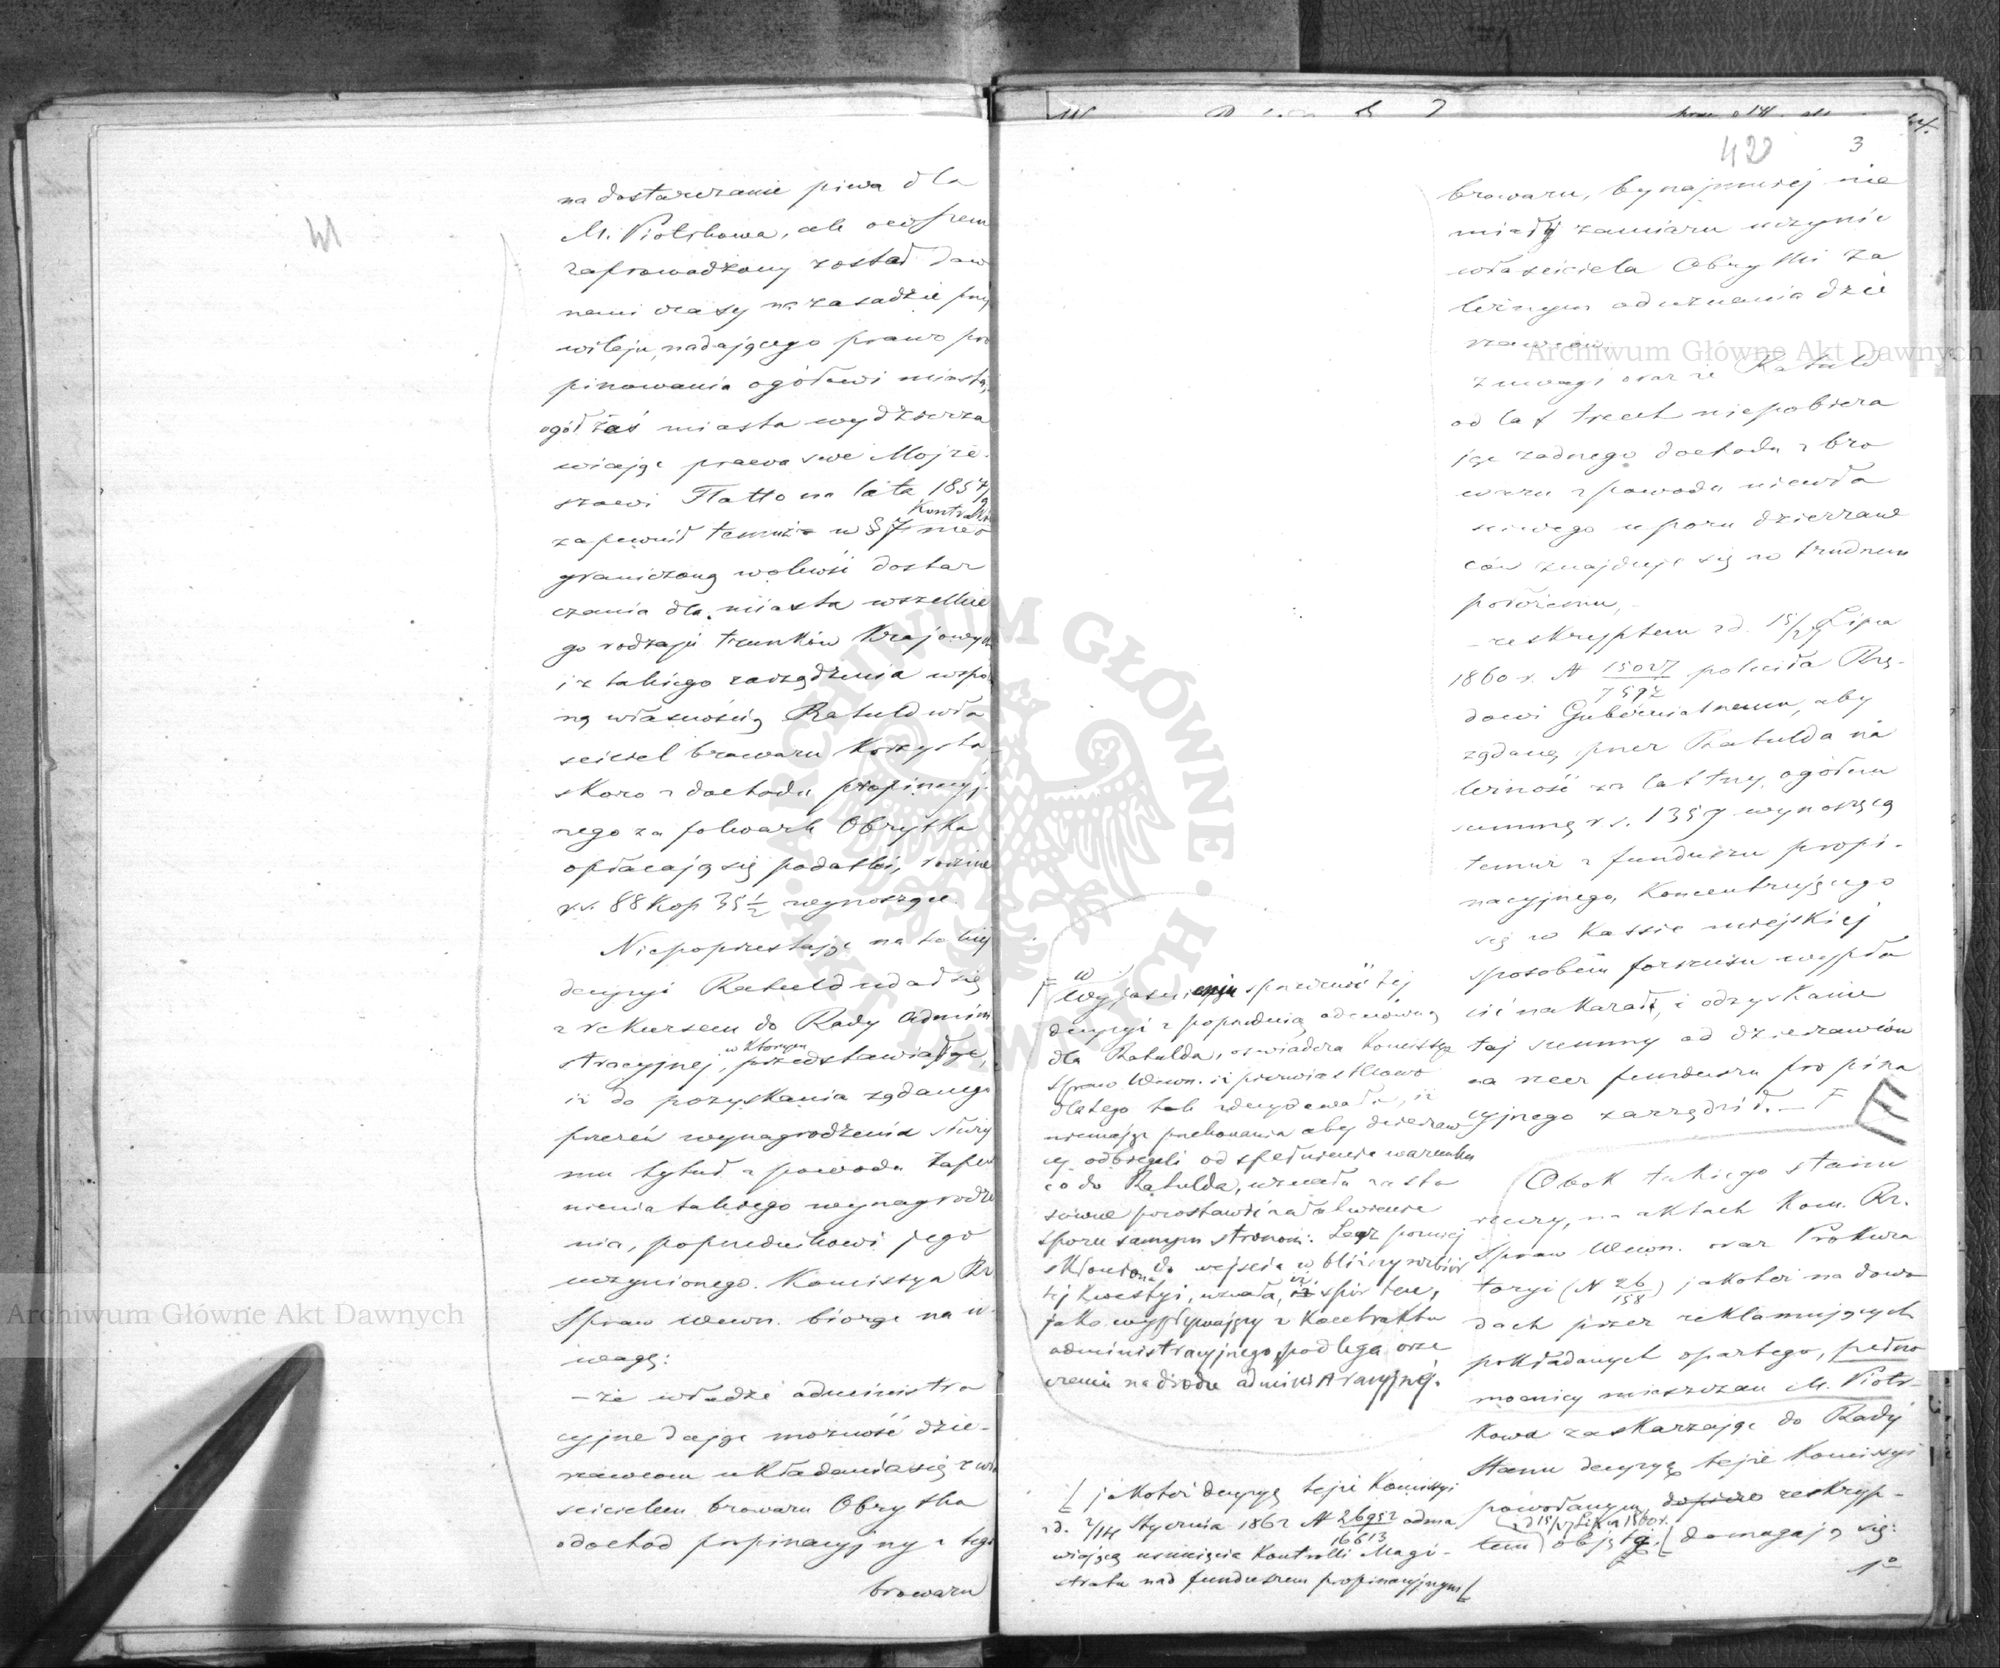 41
na dostarczanie piwa dla
M. Piotrkowa, ale owszem
zaprowadzony został daw
nemi czasy na zasadzie przy
wileju, nadającego prawo pro
pinowania ogółowi miasta,
ogół zaś miasta wydzierża
wiając prawa swe Mojże
szowi Flatto na lata 1857/9
zapewnił temuż w § 7 Kontraktu nieo
graniczoną wolność dostar
czania dla miasta wszelkie
go rodzaju trunków Krajowych
i z takiego zarządzenia
ną własnością Rahuld wła
ściciel browaru Korzysta,
skoro z dochodu propinacyj
nego za folwark Obrytka
opłacają się podatki, rocznie
r.s. 88 Kop 35 1/2 wynoszące.
Niepoprzestając na takiej
decyzyi Rahuld udał się
z rekursem do Rady Admini
stracyjnej, w Którym przedstawiając,
iż do pozyskania żądanego
przezeń wynagrodzenia służy
mu tytuł z powodu zapew
nienia takiego wynagrodze
nia, poprzednikowi jego
uczynionego. Komissya Rz
Spraw Wewn. biorąc na u-
wagę:
– że władze administra
cyjne dając możność dzie-
rżawcom układania się z wła
ścicielem browaru Obrytka
o dochód propinacyjny z tego
browaru
420 3
browaru, bynajmniej nie
miały zamiaru uczynić
właściciela Obrytki za
leżnym od uznania dzie
rżawców
z uwagi oraz że Rahuld
od lat trzech niepobiera
jąc żadnego dochodu z bro
waru z powodu niewła
ściwego uporu dzierżaw
ców znajduje się w trudnem
położeniu,
– reskryptem z d. 15/27 Lipca
1860 r. N 15027/7592 poleciła Rzą-
dowi Gubernialnemu, aby
żądaną przez Rahulda na
leżność za lat trzy, ogółem
summę r.s. 1357 wynoszącą
temuż z funduszu propi-
nacyjnego, Koncentrującego
się w Kassie miejskiej
sposobem forszusu wypła
cić nakazał, i odzyskanie
tej summy od dzierżawców
na rzecz funduszu propina
cyjnego zarządził. – F
F w Wyjaśnieniu sprzeczności tej
decyzyi z poprzednią odmówną
dla Rahulda, oświadcza Komissya
Spraw Wewn. iż pierwiastkowo
dlatego tak zdecydowała, iż
niemając przekonania aby dzierżaw
cy odbiegli od spełnienia warunku
co do Rahulda, uznała za sto
sowne pozostawić załatwienie
sporu samym stronom. Lecz później
skłoniona do wejścia w bliższy rozbiór
tej Kwestyi, uznała, iż spór ten,
jako wypływający z Kontraktu
administracyjnego, podlega orze
czeniu na drodze administracyjnej.
Obok takiego stanu
rzeczy, na aktach Kom. Rz.
Spraw Wewn. oraz Prokura
toryi (N 26/158) jakoteż na dowo
dach przez reklamujących
pokładanych opartego, pełno
mocnicy mieszczan M. Piotr-
kowa zaskarżając do Rady
Stanu decyzyę tejże Komissyi
powołanym, dopiero reskryp-
tem z d 15/27 Lipca 1860 r. objętą, [ domagają się:
1o
[ jakoteż decyzyę tejże Komissyi
z d. 2/14 Stycznia 1862 N 26952/16613 odma
wiającą usunięcia Kontrolli Magi-
stratu nad funduszem propinacyjnym [
Archiwum Główne Akt Dawnych
Archiwum Główne Akt Dawnych
ARCHIWUM GŁÓWNE AKT DAWNYCH